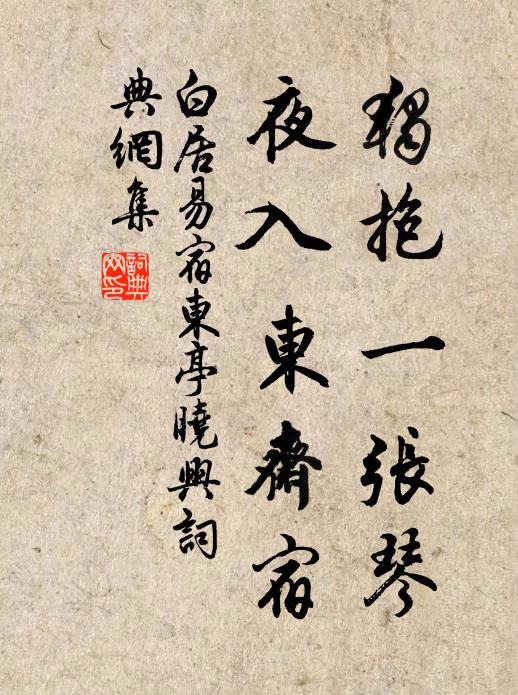 獨抱一張琴
夜入東齋宿
白居易宿東亭曉興詞
典網集
詞典
网印